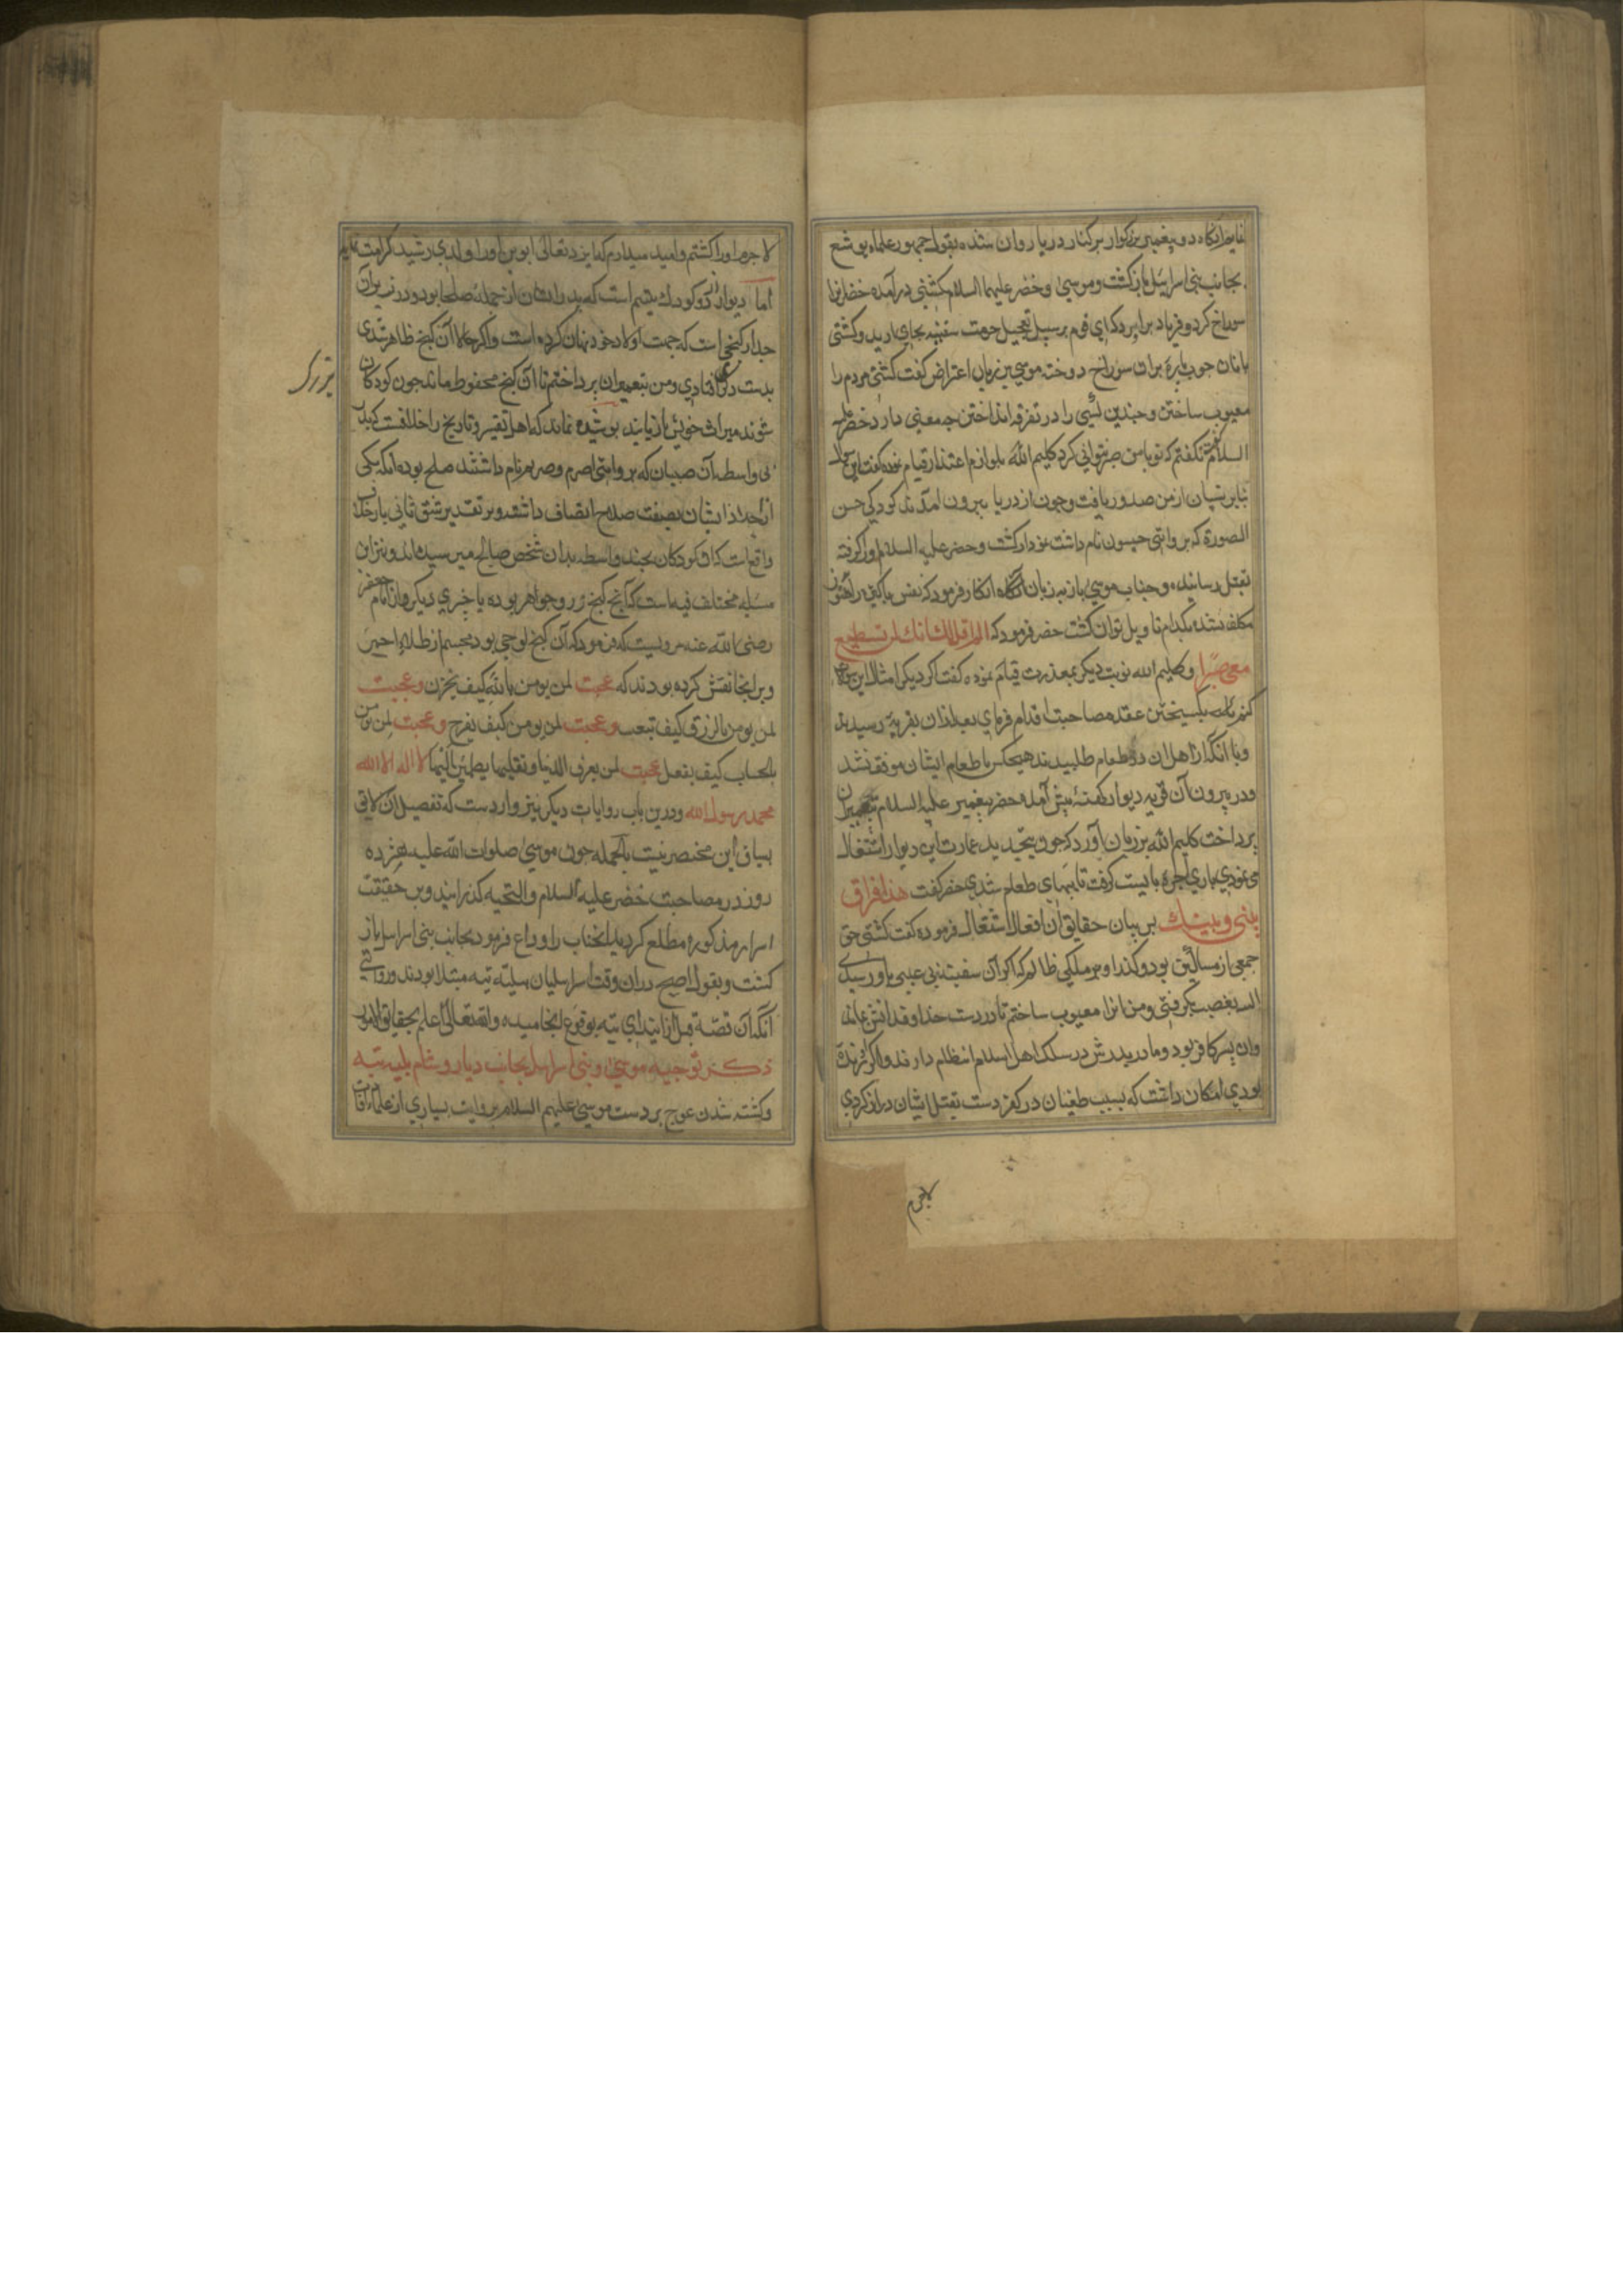 نمایم آنکاه دو پیغمبر بزرکوار بر کنار دریا روان شده بقول جمهور علماء یوشع
بجانب بنی اسرائیل بازکشت وموسی وخضر علیهما السلام بکشتی درآمده خضر انرا
سوراخ کرد وفریاد برآورد که ای قوم بر سبیل تعجیل جهت سفینه بجای آرید وکشتی
بانان چوب پارۀ بران سوراخ دوخته موسی بر زبان اعتراض کفت کشتی مردم را
معیوب ساختن وچندین کسی را در تفرقه انداختن چه معنی دارد خضر علیه
السلام کفت نکفتم که تو با من صبر نتوانی کرد کلیم الله بلوازم اعتذار قیام نموده کفت این سؤال
بنابر نسیان از من صدور یافت وچون از دریا بیرون آمدند کودکی حسن
الصورة که بروایتی حیسون نام داشت نمودار کشت وخضر علیه السلام او را کرفته
بقتل رسانیده وجناب موسی باز بر زبان انکار فرمود که نفس پاکیزه را هنوز
مکلف نشده بکدام تاویل توان کشت خضر فرمود که الم اقل لك انك لن تستطیع
معی صبرا وکلیم الله نوبت دیکر بمعذرت قیام نموده کفت اکر دیکر امثال این سؤال
کنم باید بکسیختن عقد مصاحبت اقدام فرمای بعد از ان بقریه رسیدند
وبا انکه از اهل ان ده طعام طلبیدند هیچکس باطعام ایشان موفق نشد
ودر بیرون آن قریه دیوار کهنۀ پیش آمده خضر پیغمبر علیه السلام بتعمیر ان
پرداخت کلیم الله بر زبان آورد که چون بتجدید عمارت این دیوار اشتغال
می نمودی باری اجرة بایست کرفت تا بهای طعام شدی خضر کفت هذا فراق
بینی وبینك بر بیان حقایق آن افعال اشتغال فرموده کفت کشتی حق
جمعی از مساکین بود وکذر او بر ملکی ظالم که اکر آن سفینه بی عیبی باو رسیدی
البته بغصب بکرفتی ومن انرا معیوب ساختم تا در دست خداوندانش بماند
وان پسر کافر بود ومادر وپدرش در سلك اهل اسلام انتظام دارند واکر او زنده
بودی امکان داشت که بسبب طغیان در کفر دست بقتل ایشان دراز کردی
لاجرم
لاجرم او را کشتم وامید میدارم که ایزد تعالی ابوین او را ولدی رشید کرامت نماید
اما دیوار از دو کودك یتیم است که پدر ایشان از جمله صلحا بود ودر زیر آن
جدار کنجی است که جهت اولاد خود نهان کرده است واکر حالا آن کنج ظاهر شدی
بدست دیکری افتادی ومن بتعمیر ان پرداختم تا آن کنج محفوظ ماند چون کودکان
بزرك
شوند میراث خویش بازیابند پوشیده نماند که اهل تفسیر وتاریخ را خلافست که پدر
بی واسطه آن صبیان که بروایتی اصرم وصریم نام داشتند صالح بوده یا انکه یکی
از اجداد ایشان بصفت صلاح اتصاف داشته وبر تقدیر شق ثانی باز خلاف
واقعست که ان کودکان بچند واسطه بدان شخص صالح میرسیده اند ونیز این
مسئله مختلف فیه است که آن کنج زر وجواهر بوده یا چیزی دیکر واز امام جعفر
رضی الله عنه مرویست که فرمود که آن کنج لوحی بود مجسم از طلاء احمر
وبر انجا نقش کرده بودند که عجبت لمن یومن بالله کیف یحزن وعجبت
لمن یومن بالرزق کیف یتعب وعجبت لمن یومن کیف یفرح وعجبت لمن یومن
بالحساب کیف یغفل عجبت لمن یعرف الدنیا وتقلبها یطمئن الیها لا اله الا الله
محمد رسول الله ودرین باب روایات دیکر نیز واردست که تفصیل آن لایق
بسیاق این مختصر نیست بالجمله چون موسی صلوات الله علیه هژده
روز در مصاحبت خضر علیه السلام والتحیه کذرانید وبر حقیقت
اسرار مذکوره مطلع کردید انجناب را وداع فرموده بجانب بنی اسرائیل باز
کشت وبقول اصح دران وقت اسرائیلیان ببلیه تیه مبتلا بودند وروایتی
آنکه آن قصه قبل از ابتدای تیه بوقوع انجامیده والله تعالی اعلم بحقایق الامور
ذکر توجیه موسی وبنی اسرائیل بجانب دیار وشام ببلیه تیه
وکشته شدن عوج بر دست موسی علیهم السلام بروایت بسیاری از علماء آفاق